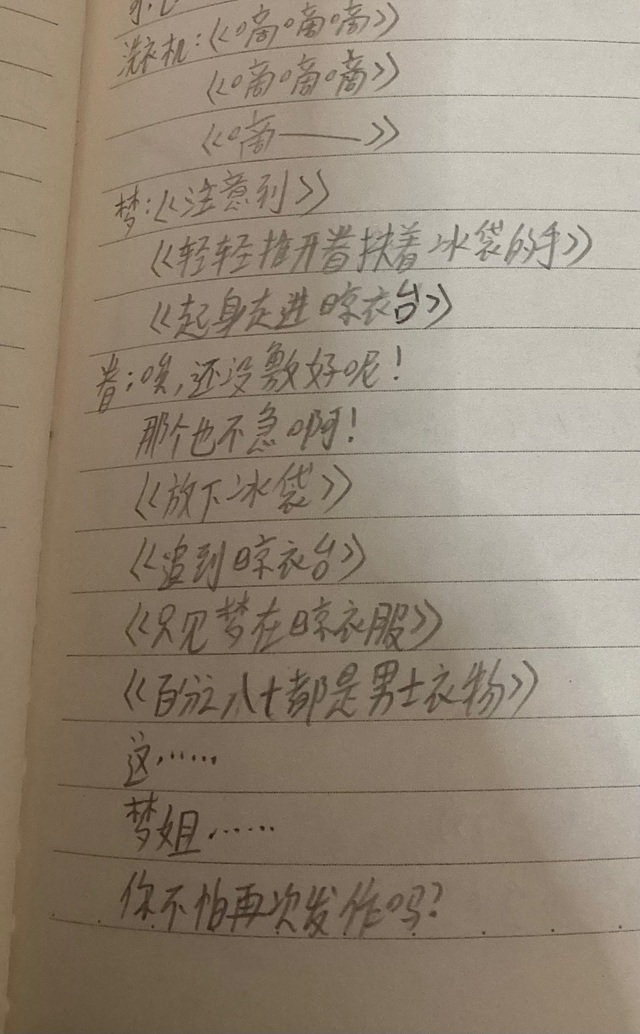 洗衣机:《嘀嘀嘀》
《嘀嘀嘀》
《嘀——》
梦:《注意到》
《轻轻推开眷扶着冰袋的手》
《起身走进晾衣台》
眷:唉,还没敷好呢!
那个也不急啊!
《放下冰袋》
《追到晾衣台》
《只见梦在晾衣服》
《百分之八十都是男士衣物》
这……
梦姐……
你不怕再次发作吗?